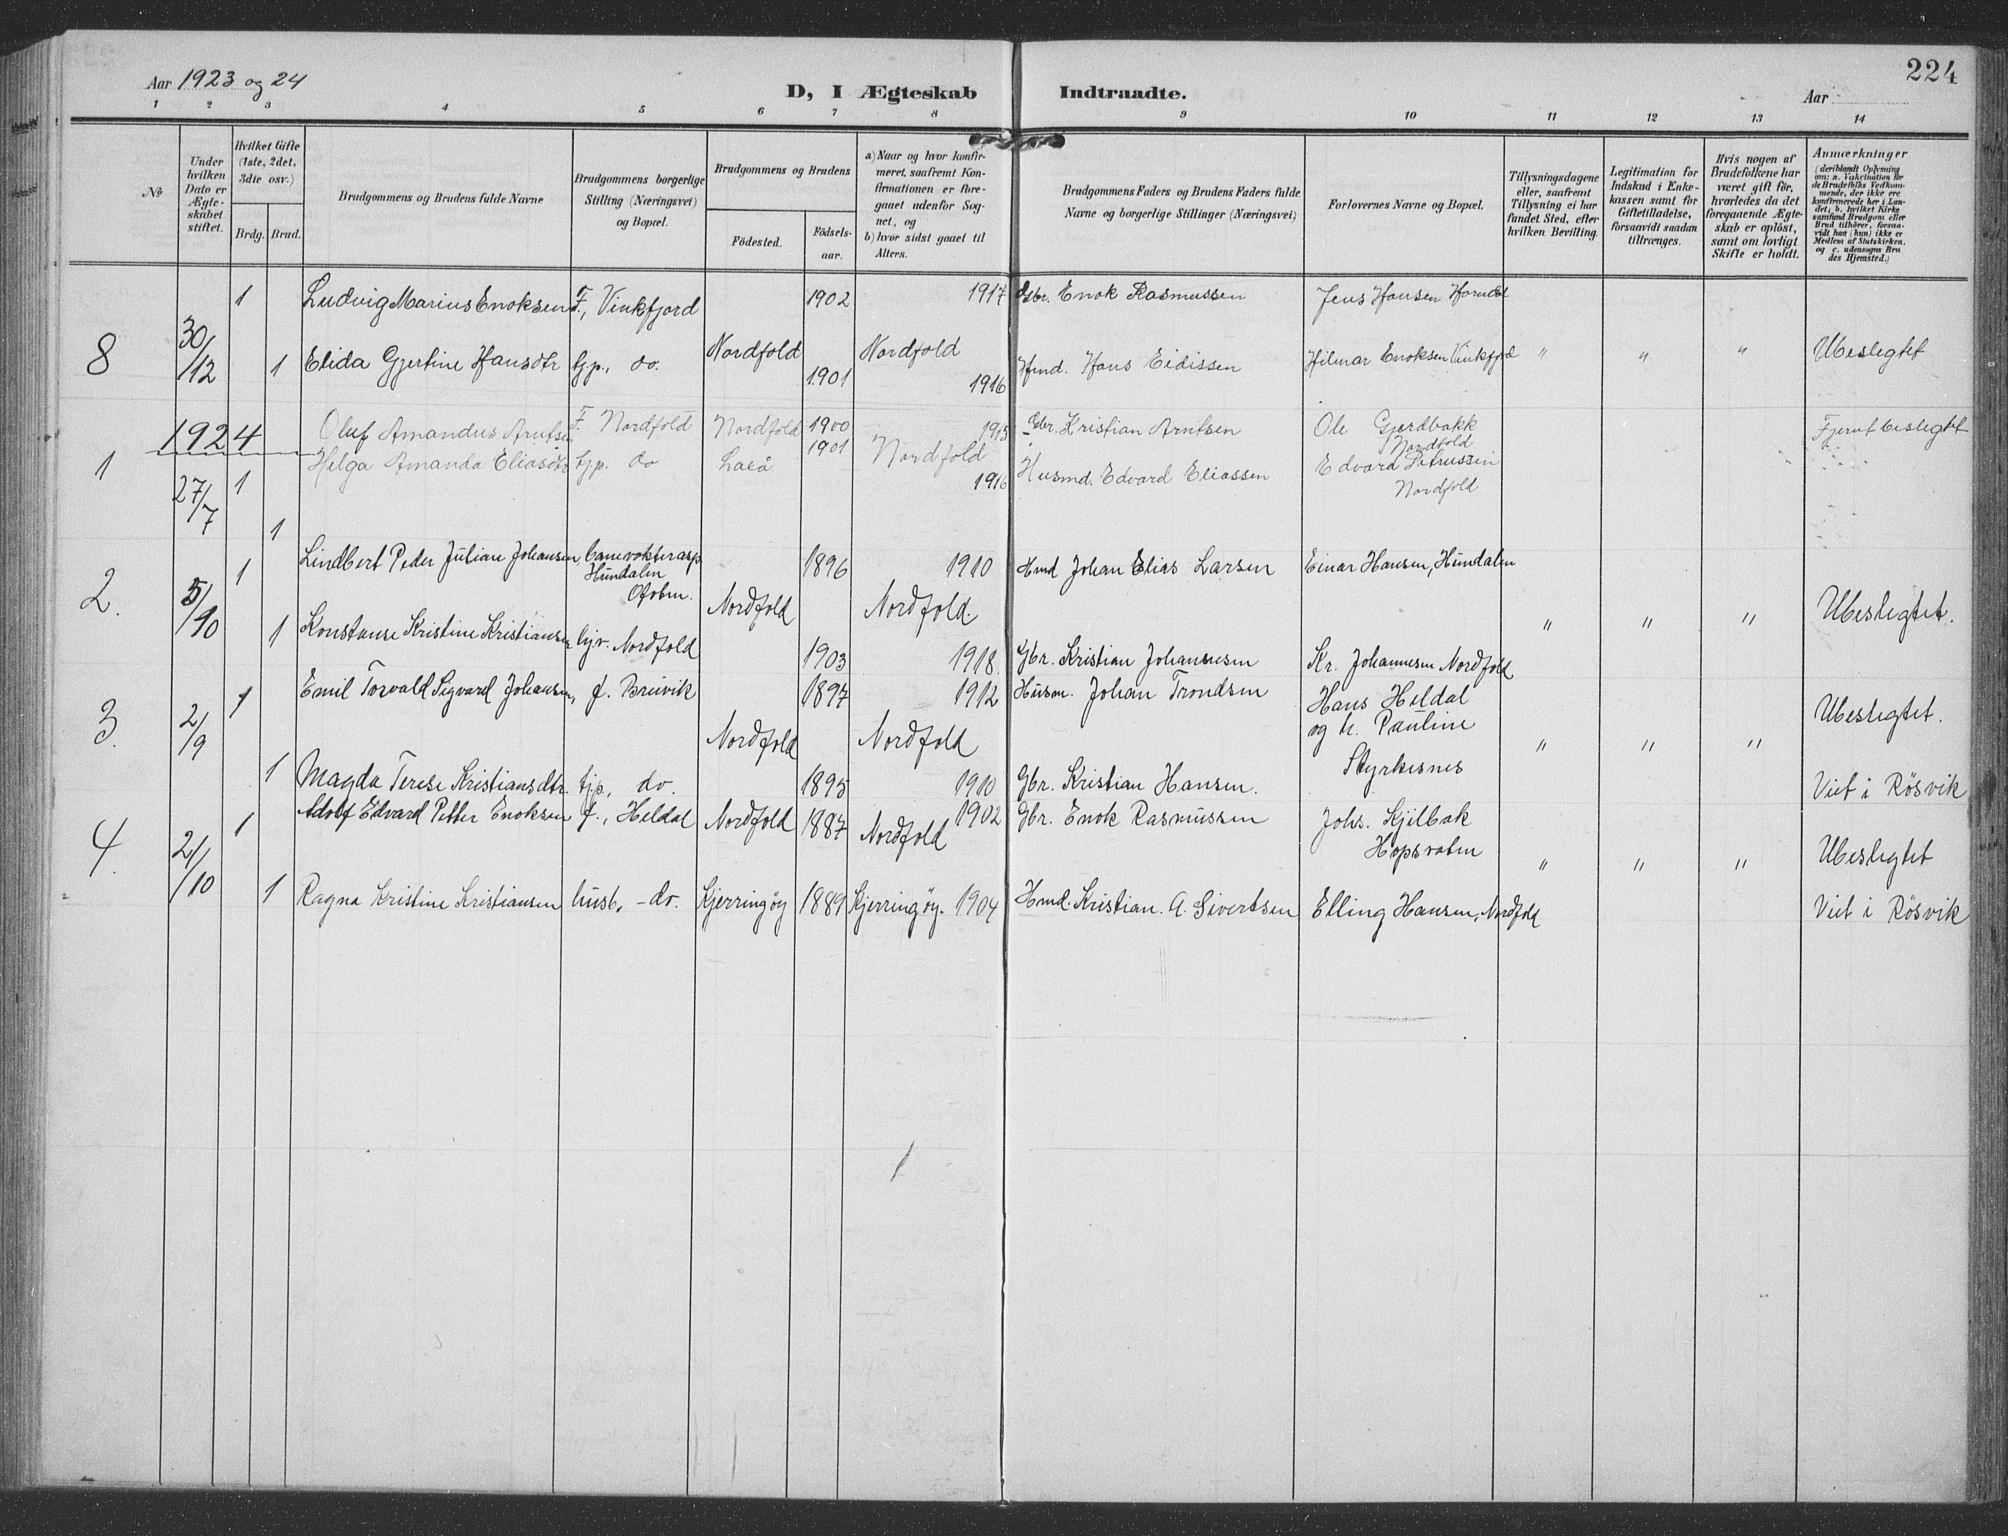 224
Aar 1923 og 24
D, I Ægteskab Indtraadte.
Aar
1 2 3 4 5 6 7 8 9 10 11 12 13 14
No
Under hvilken Dato er Ægteskabet stiftet.
Hvilket Gifte (1ste, 2det, 3die osv.)
Brdg. Brud.
Brudgommens og Brudens fulde Navne
Brudgommens borgerlige Stilling (Næringsvei) og Bopæl.
Brudgommens og Brudens
Födested. Födselsaar.
a) Naar og hvor konfirmeret, saafremt Konfirmationen er foregaaet udenfor Sognet, og
b) hvor sidst gaaet til Alters.
Brudgommens Faders og Brudens Faders fulde Navne og borgerlige Stillinger (Næringsvei)
Forlovernes Navne og Bopæl.
Tillysningsdagene eller, saafremt Tillysning ei har fundet Sted, efter hvilken Bevilling.
Legitimation for Indskud i Enkekassen samt for Giftetilladelse, forsaavidt saadan tiltrænges.
Hvis nogen af Brudefolkene har været gift för, hvorledes da det foregaaende Ægteskab er oplöst, samt om lovligt Skifte er holdt.
Anmærkninger (deriblandt Oplysning om: a. Vakcination for de Brudefolks Vedkommende, der ikke ere konfirmerede her i Landet; b. hvilket Kirkesamfund Brudgom eller Brud tilhörer, forsaavidt han (hun) ikke er Medlem af Statskirken. og c. udensogns Brudes Hjemsted.)
1 Ludvig Marius Enoksen F., Vinkfjord 1902 1917 Gbr. Enok Rasmussen Jens Hansen Horndal
8 30/12 Nordfold Nordfold Ubeslegtet
1 Elida Gjertine Hansdtr tjp., do. 1901 1916 Hmd. Hans Eidissen Hilmar Enoksen Vinkfjord " " "
1924 Oluf Amandus Arntsen F. Nordfold Nordfold 1900 1915 Gbr. Kristian Arntsen Ole Gjerdbakk Nordfold Fjernt beslegtet
1 27/7 1 Helga Amanda Eliasdtr tjp. do 1901 Nordfold 1916 Husmd. Edvard Eliassen Edvard Nordfold
1
1 Lindbert Peder Julian Johansen, banevokterasp. Hundalen Ofoten. 1896 1910 Hmd Johan Elias Larsen Einar Hansen, Hundalen
2. 5/10 Nordfold Nordfold. " " " Ubeslegtet.
1 Konstanse Kristine Kristiansen hjv. Nordfold 1903 1918. Gbr. Kristian Johannesen Kr. Johannesen Nordfold
1 Emil Torvald Sigvard Johansen, f. Breivik 1897 1912 Husm. Johan Trondsen Hans Heldal
3. 2/9 Nordfold Nordfold og h. Pauline " " " Ubeslegtet.
Styrkesnes
1 Magda Terese Kristiansdtr. tjp., do. 1895 1910 Gbr. Kristian Hansen. Viet i Rösvik
1 Adolf Edvard Petter Enoksen f., Heldal Nordfold 1887 Nordfold 1902 Gbr. Enok Rasmussen Johs. Kjelbak
4. 2/10 Hopsvatn " " " Ubeslegtet
1 Ragna Kristine Kristiansen husb. - do. Kjerringöy 1889 Kjerringöy. 1904 Hmd. Kristian. A. Sivertsen Elling Hansen, Nordfold Viet i Rösvik